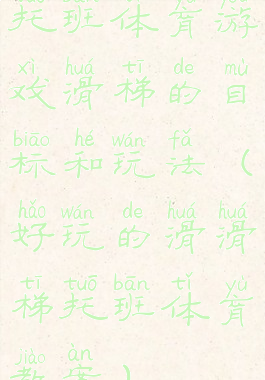 托班体育游
xì huá tī de mù
戏滑梯的目
biāo hé wán fǎ
标和玩法（
hǎo wán de huá huá
好玩的滑滑
tī tuō bān tǐ yù
梯托班体育
jiào àn
教案）